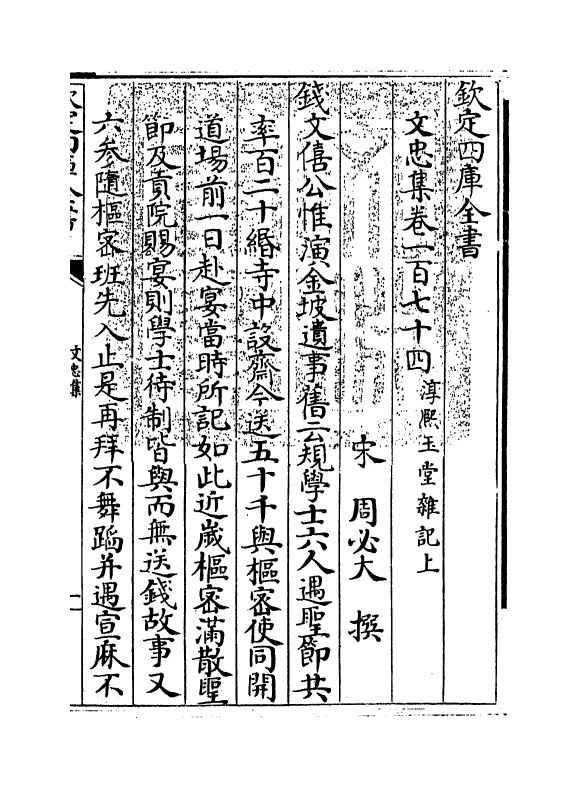 欽定四庫全書
文忠集卷一百七十四 淳熙玉堂雜記上
宋 周必大 撰
錢文僖公惟演金坡遺事舊云規學士六人遇聖節共
率百二十緡寺中設齋今送五十千與樞密使同開
道場前一日赴宴當時所記如此近歲樞密滿散聖
節及貢院賜宴則學士待制皆與而無送錢故事又
六參隨樞密班先入止是再拜不舞蹈并遇宣麻不
文忠集
一